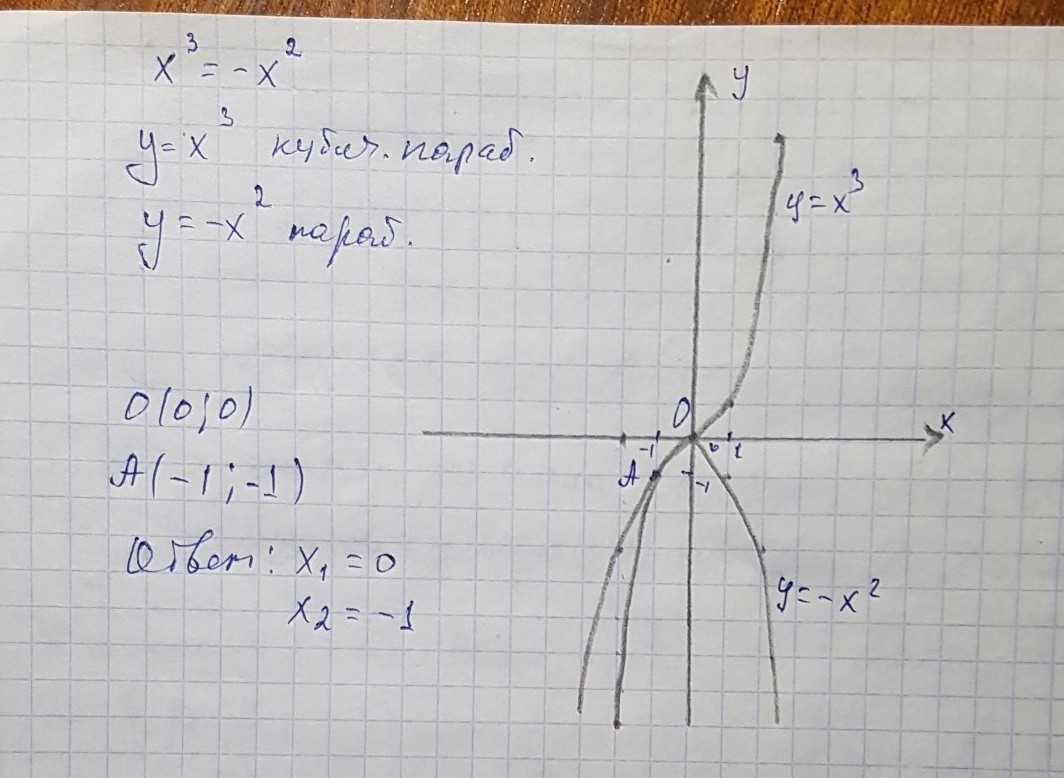 x³ = -x²
y = x³ кубич. параб.
y = -x² параб.
O(0;0)
A(-1;-1)
Ответ: x₁ = 0
x₂ = -1
y
y = x³
O
x
-1
0
1
A
-1
y = -x²